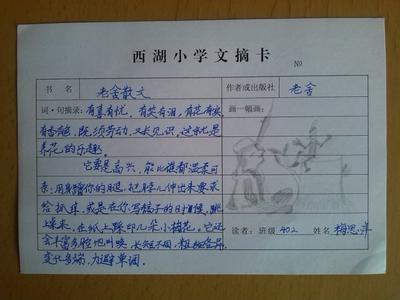 西湖小学文摘卡
№
书 名 老舍散文 作者或出版社 老舍
词·句摘录: 有喜有忧，有笑有泪，有花有实， 画一幅画:
有香有色，既须劳动，又长见识，这就是
养花的乐趣。
它要是高兴，能比谁都温柔可
亲：用身子蹭你的腿，把脖儿伸出来要求
给抓痒，或是在你写稿子的时候，跳
上桌来，在纸上踩印几朵小梅花。它还
会丰富多腔地叫唤，长短不同，粗细各异，
变化多端，力避单调。
读者: 班级 402 姓名 梅思